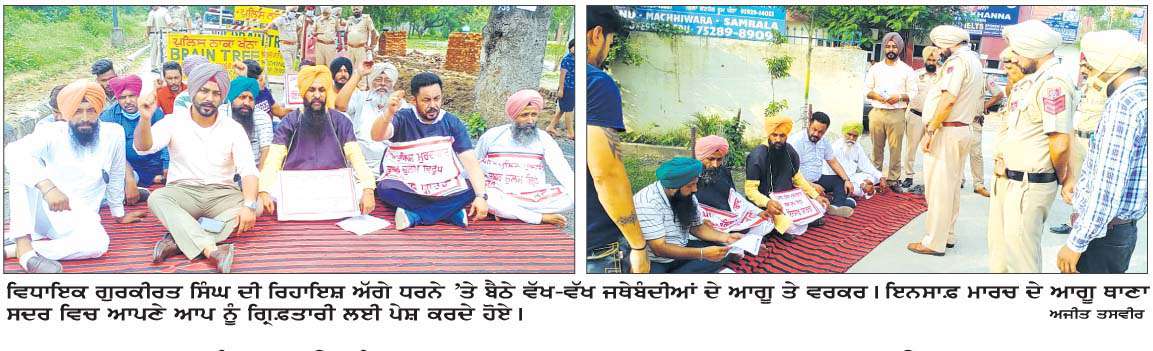 ਪੁਲਿਸ ਨਾਕਾ ਖੰਨਾ
BRAIN TREE
NU - MACHHIWARA - SAMRALA
75289-8909
IELTS
HANNA
ਵਿਧਾਇਕ ਗੁਰਕੀਰਤ ਸਿੰਘ ਦੀ ਰਿਹਾਇਸ਼ ਅੱਗੇ ਧਰਨੇ 'ਤੇ ਬੈਠੇ ਵੱਖ-ਵੱਖ ਜਥੇਬੰਦੀਆਂ ਦੇ ਆਗੂ ਤੇ ਵਰਕਰ। ਇਨਸਾਫ਼ ਮਾਰਚ ਦੇ ਆਗੂ ਥਾਣਾ
ਸਦਰ ਵਿਚ ਆਪਣੇ ਆਪ ਨੂੰ ਗ੍ਰਿਫ਼ਤਾਰੀ ਲਈ ਪੇਸ਼ ਕਰਦੇ ਹੋਏ।
ਅਜੀਤ ਤਸਵੀਰ